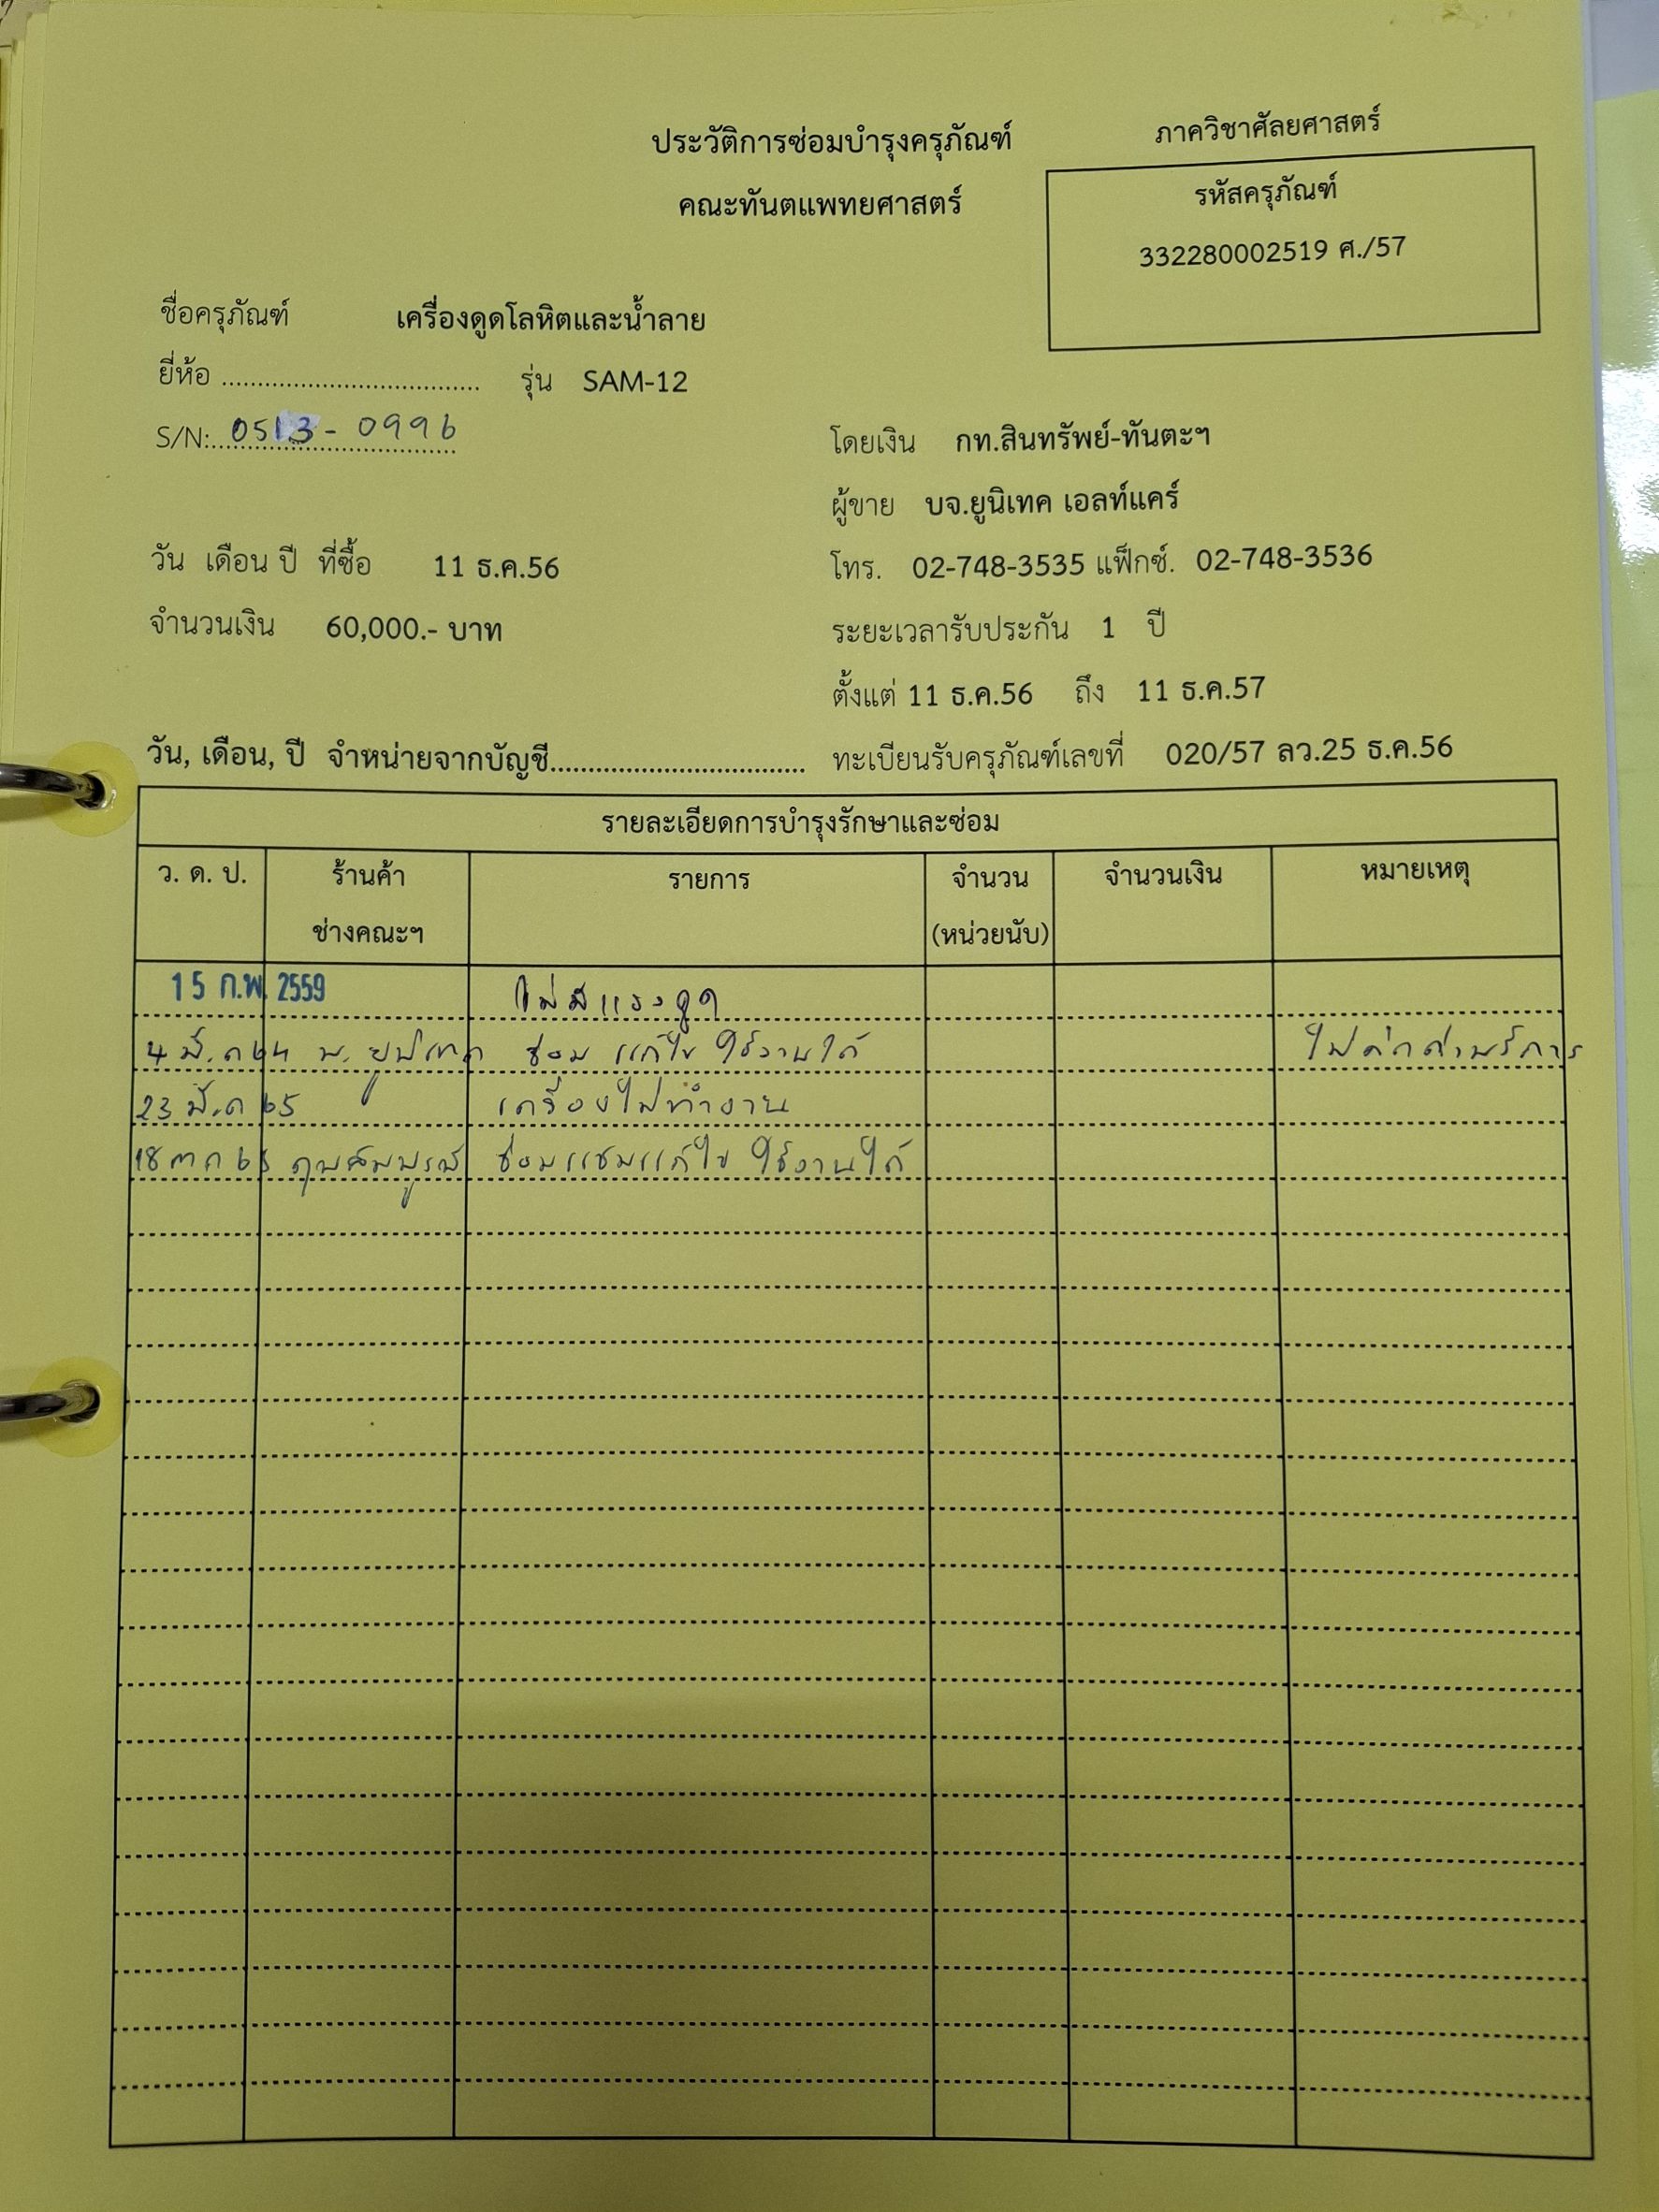 ภาควิชาศัลยศาสตร์
ประวัติการซ่อมบำรุงครุภัณฑ์
คณะทันตแพทยศาสตร์
รหัสครุภัณฑ์
332280002519 ศ./57
ชื่อครุภัณฑ์ เครื่องดูดโลหิตและน้ำลาย
ยี่ห้อ .................................... รุ่น SAM-12
S/N: 0513-0996
โดยเงิน กท.สินทรัพย์-ทันตะฯ
ผู้ขาย บจ.ยูนิเทค เอลท์แคร์
วัน เดือน ปี ที่ซื้อ 11 ธ.ค.56 โทร. 02-748-3535 แฟ็กซ์. 02-748-3536
จำนวนเงิน 60,000.- บาท ระยะเวลารับประกัน 1 ปี
ตั้งแต่ 11 ธ.ค.56 ถึง 11 ธ.ค.57
วัน, เดือน, ปี จำหน่ายจากบัญชี.................................. ทะเบียนรับครุภัณฑ์เลขที่ 020/57 ลว.25 ธ.ค.56
รายละเอียดการบำรุงรักษาและซ่อม
ว. ด. ป. ร้านค้า รายการ จำนวน จำนวนเงิน หมายเหตุ
ช่างคณะฯ (หน่วยนับ)
15 ก.พ. 2559 ไม่มีแรงดูด
4 มี.ค 64 ซ่อม แก้ไข ใช้งานได้ ไม่คิดค่าบริการ
23 มี.ค 65 เครื่องไม่ทำงาน
18 ซ่อมแซมแก้ไข ใช้งานได้